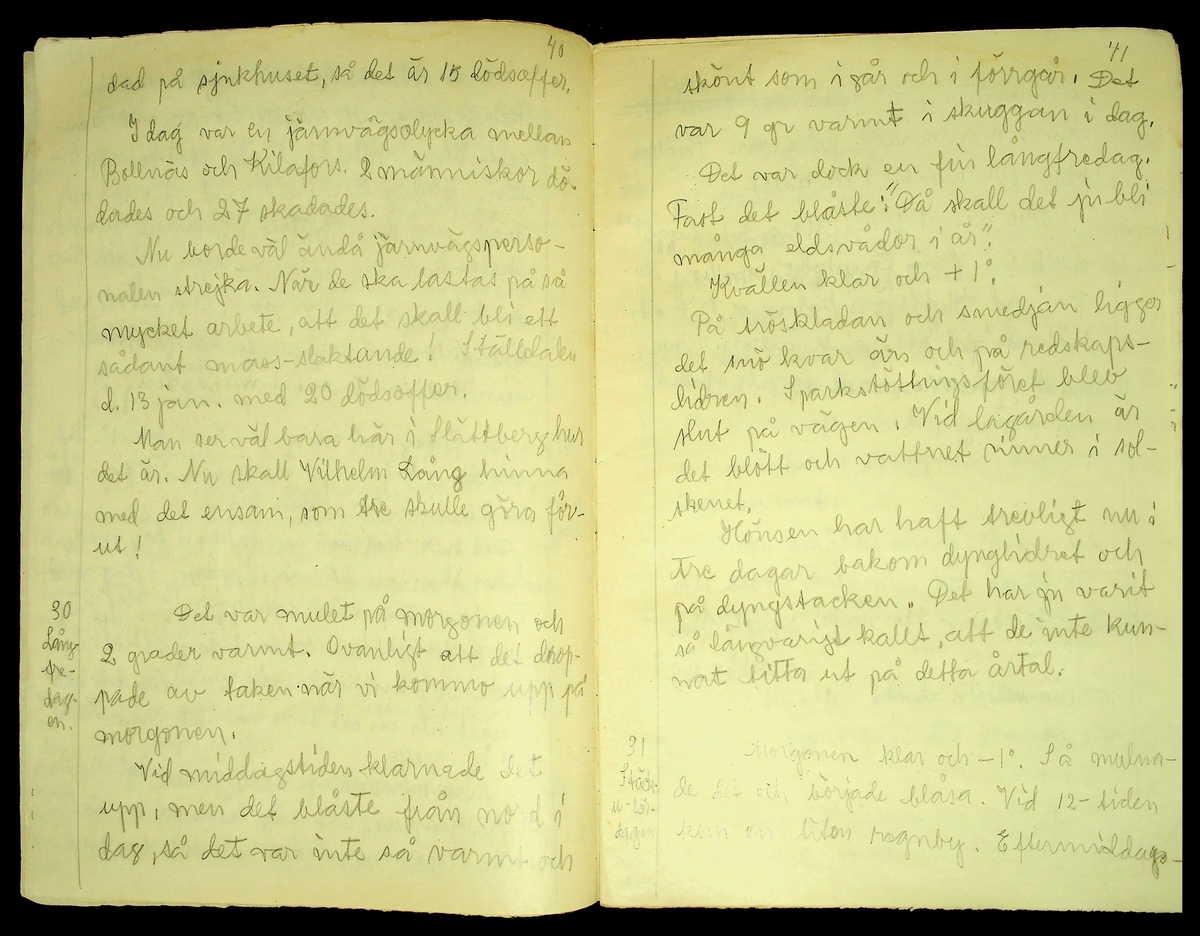 40
dad på sjukhuset, så det är 15 dödsoffer.
I dag var en järnvägsolycka mellan
Bollnäs och Kilafors. 2 människor dö-
dades och 27 skadades.
Nu borde väl ändå järnvägsperso-
nalen strejka. När de ska lastas på så
mycket arbete, att det skall bli ett
sådant mass-slaktande! Ställdalen
d. 13 jan. med 20 dödsoffer.
Man ser väl bara här i Slättberg hur
det är. Nu skall Vilhelm Lång hinna
med det ensam, som tre skulle göra för-
ut!
30
Lång
fre-
dag-
en.
Det var mulet på morgonen och
2 grader varmt. Ovanligt att det drop-
pade av taken när vi kommo upp på
morgonen.
Vid middagstiden klarnade det
upp, men det blåste från nord i
dag, så det var inte så varmt och
41
skönt som i går och i förrgår. Det
var 9 gr varmt i skuggan i dag.
Det var dock en fin långfredag.
Fast det blåste: "Då skall det ju bli
många eldsvådor i år".
Kvällen klar och +1°.
På tröskladan och smedjan ligger
det snö kvar än och på redskaps-
lidren. Sparkstöttingsföret blev
slut på vägen. Vid lagården är
det blött och vattnet rinner i sol-
skenet.
Hönsen har haft trevligt nu i
tre dagar bakom dynglidret och
på dyngstacken. Det har ju varit
så långvarigt kallt, att de inte kun-
nat titta ut på detta årtal.
31
dagen
Morgonen klar och -1°. Så mulna-
de det och började blåsa. Vid 12-tiden
kom en liten regnby. Eftermiddags-